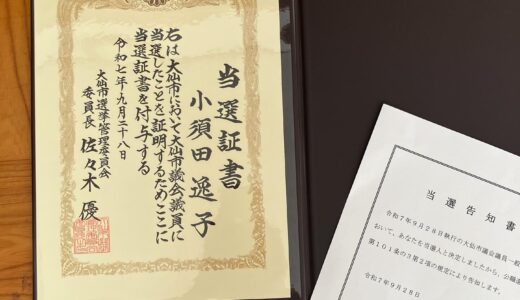 当選証書
小須田逸子
右は大仙市において大仙市議会議員に
当選したことを証明するためここに
当選証書を付与する
令和七年九月二十八日
大仙市選挙管理委員会
委員長 佐々木優
当選告知書
令和7年9月28日執行の大仙市議会議員一般
おいて、あなたを当選人と決定しましたから、公職選
第101条の3第2項の規定により告知します。
令和7年9月28日